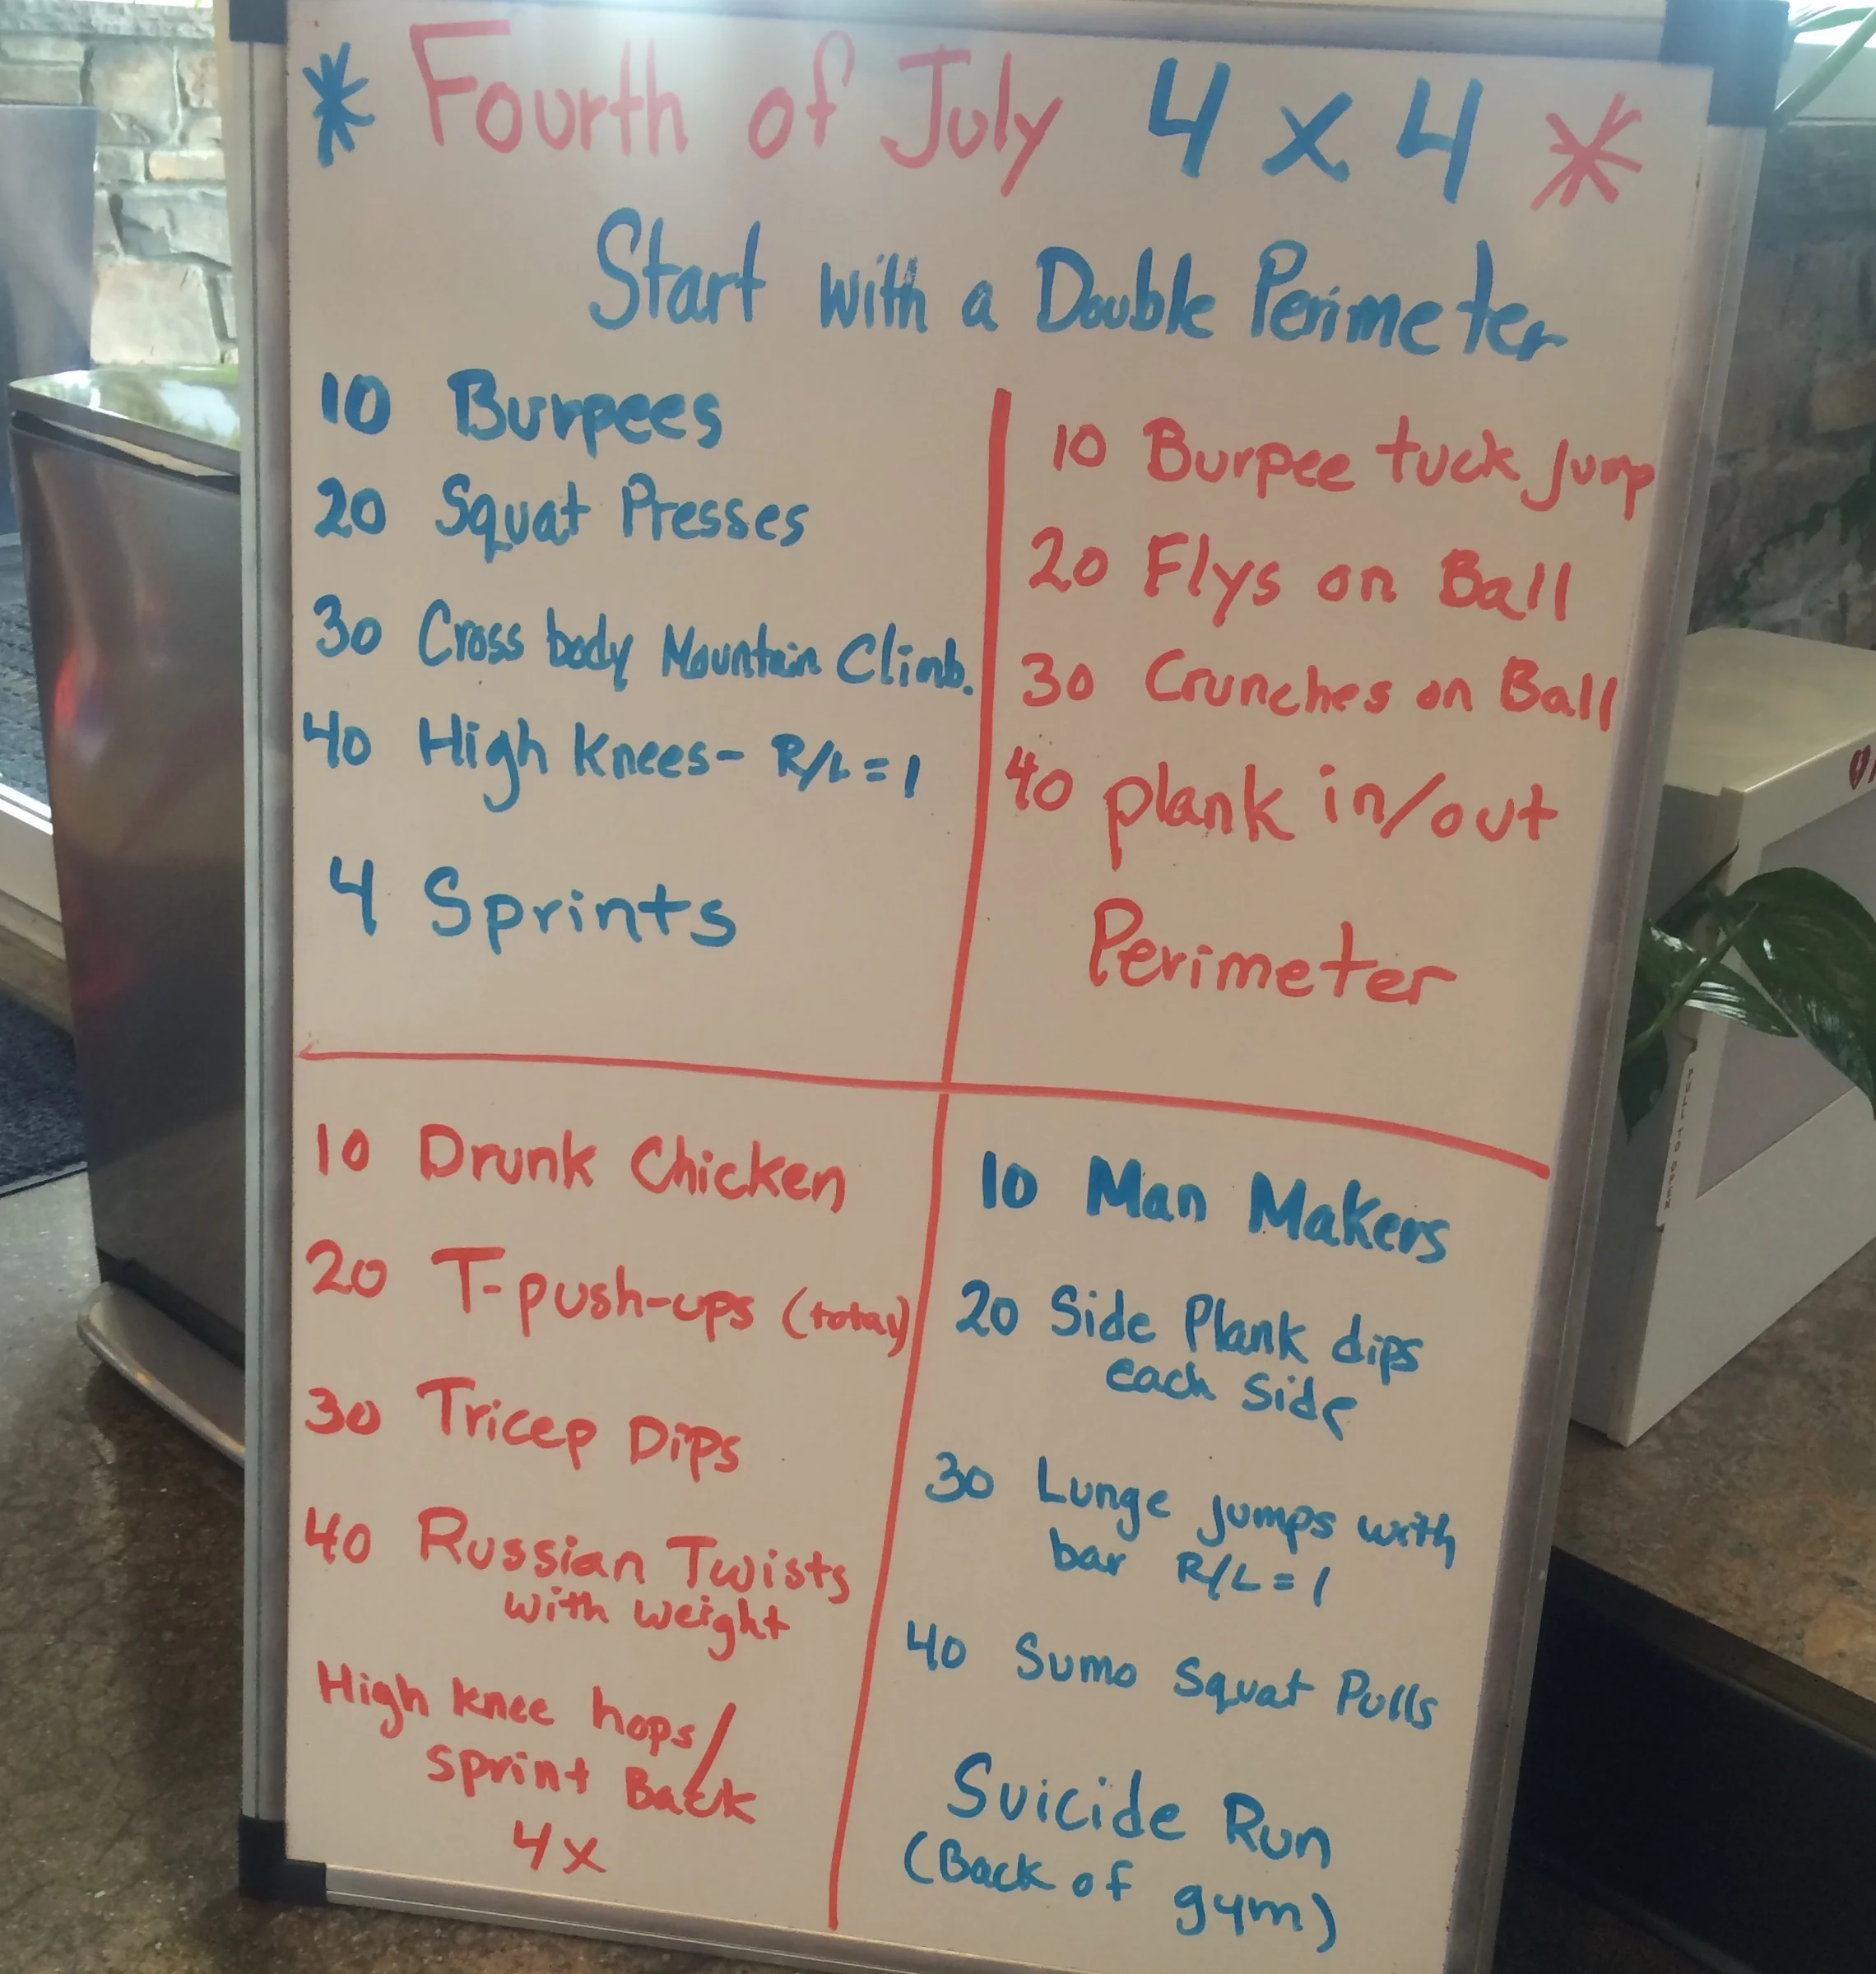 * Fourth of July 4 x 4 *
Start with a Double Perimeter
10 Burpees
20 Squat Presses
30 Cross body Mountain Climb.
40 High Knees- R/L = 1
4 Sprints
10 Burpee tuck jump
20 Flys on Ball
30 Crunches on Ball
40 plank in/out
Perimeter
10 Drunk Chicken
20 T-push-ups (total)
30 Tricep Dips
40 Russian Twists
with weight
High knee hops/
sprint Back
4x
10 Man Makers
20 Side Plank dips
each side
30 Lunge jumps with
bar R/L = 1
40 Sumo Squat Pulls
Suicide Run
(Back of gym)